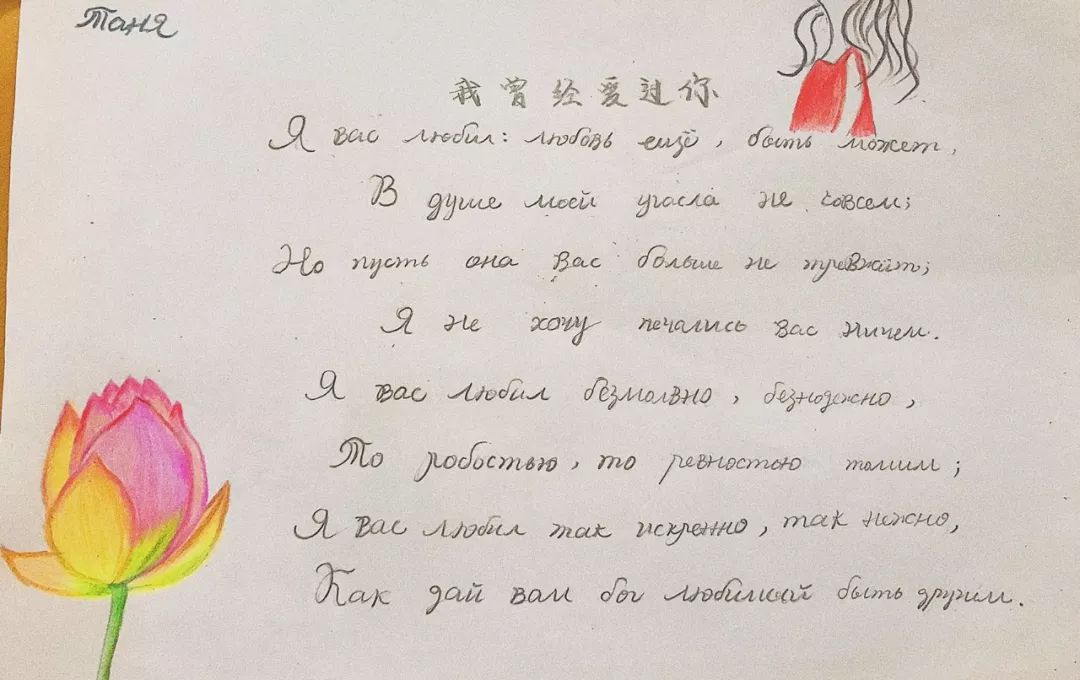 Таня
我曾经爱过你
Я вас любил: любовь ещё, быть может,
В душе моей угасла не совсем;
Но пусть она вас больше не тревжит;
Я не хочу печались вас ничем.
Я вас любил безмолвно, безнодежно,
То робостью, то ревностью томим;
Я вас любил так искренно, так нежно,
Как дай вам бог любимой быть другим.